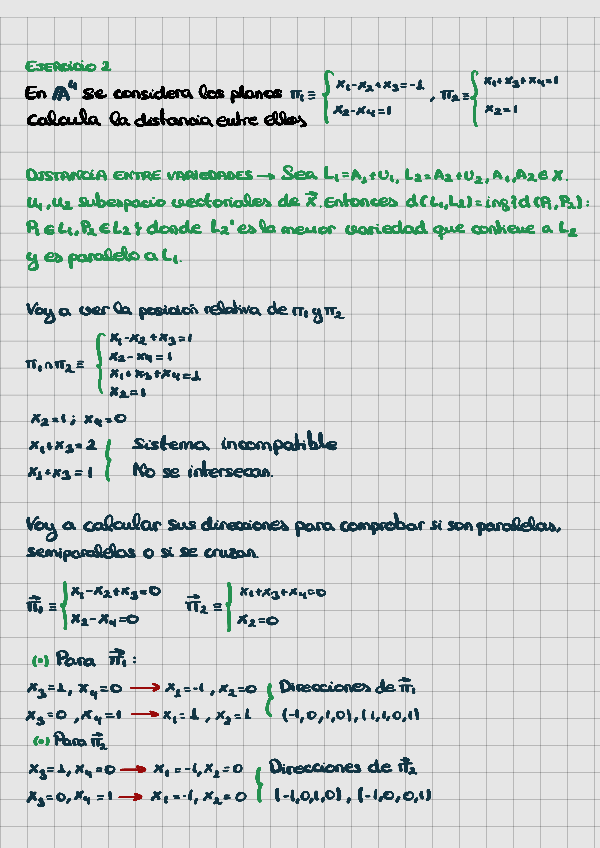 EJERCICIO 2
En A⁴ se considera los planos π₁ ≡ { x₁-x₂+x₃=-1 , x₂-x₄=1 , π₂ ≡ { x₁+x₃+x₄=1 , x₂=1
Calcula la distancia entre ellos
DISTANCIA ENTRE VARIEDADES → Sea L₁=A₁+U₁, L₂=A₂+U₂, A₁,A₂∈X.
U₁,U₂ subespacio vectoriales de X⃗. Entonces d(L₁,L₂)=inf{d(P₁,P₂):
P₁∈L₁,P₂∈L₂} donde L₂' es la menor variedad que contiene a L₂
y es paralelo a L₁.
Voy a ver la posición relativa de π₁ y π₂
π₁∩π₂ ≡ { x₁-x₂+x₃=1
x₂-x₄=1
x₁+x₃+x₄=1
x₂=1
x₂=1; x₄=0
x₁+x₃=2 } Sistema incompatible
x₁+x₃=1 } No se intersecan.
Voy a calcular sus direcciones para comprobar si son paralelas,
semiparalelas o si se cruzan.
π⃗₁ ≡ { x₁-x₂+x₃=0 , x₂-x₄=0 π⃗₂ ≡ { x₁+x₃+x₄=0 , x₂=0
(•) Para π⃗₁:
x₃=1, x₄=0 → x₁=-1, x₂=0 { Direcciones de π⃗₁
x₃=0, x₄=1 → x₁=1, x₂=1 { (-1,0,1,0), (1,1,0,1)
(•) Para π⃗₂
x₃=1, x₄=0 → x₁=-1, x₂=0 { Direcciones de π⃗₂
x₃=0, x₄=1 → x₁=-1, x₂=0 { (-1,0,1,0), (-1,0,0,1)